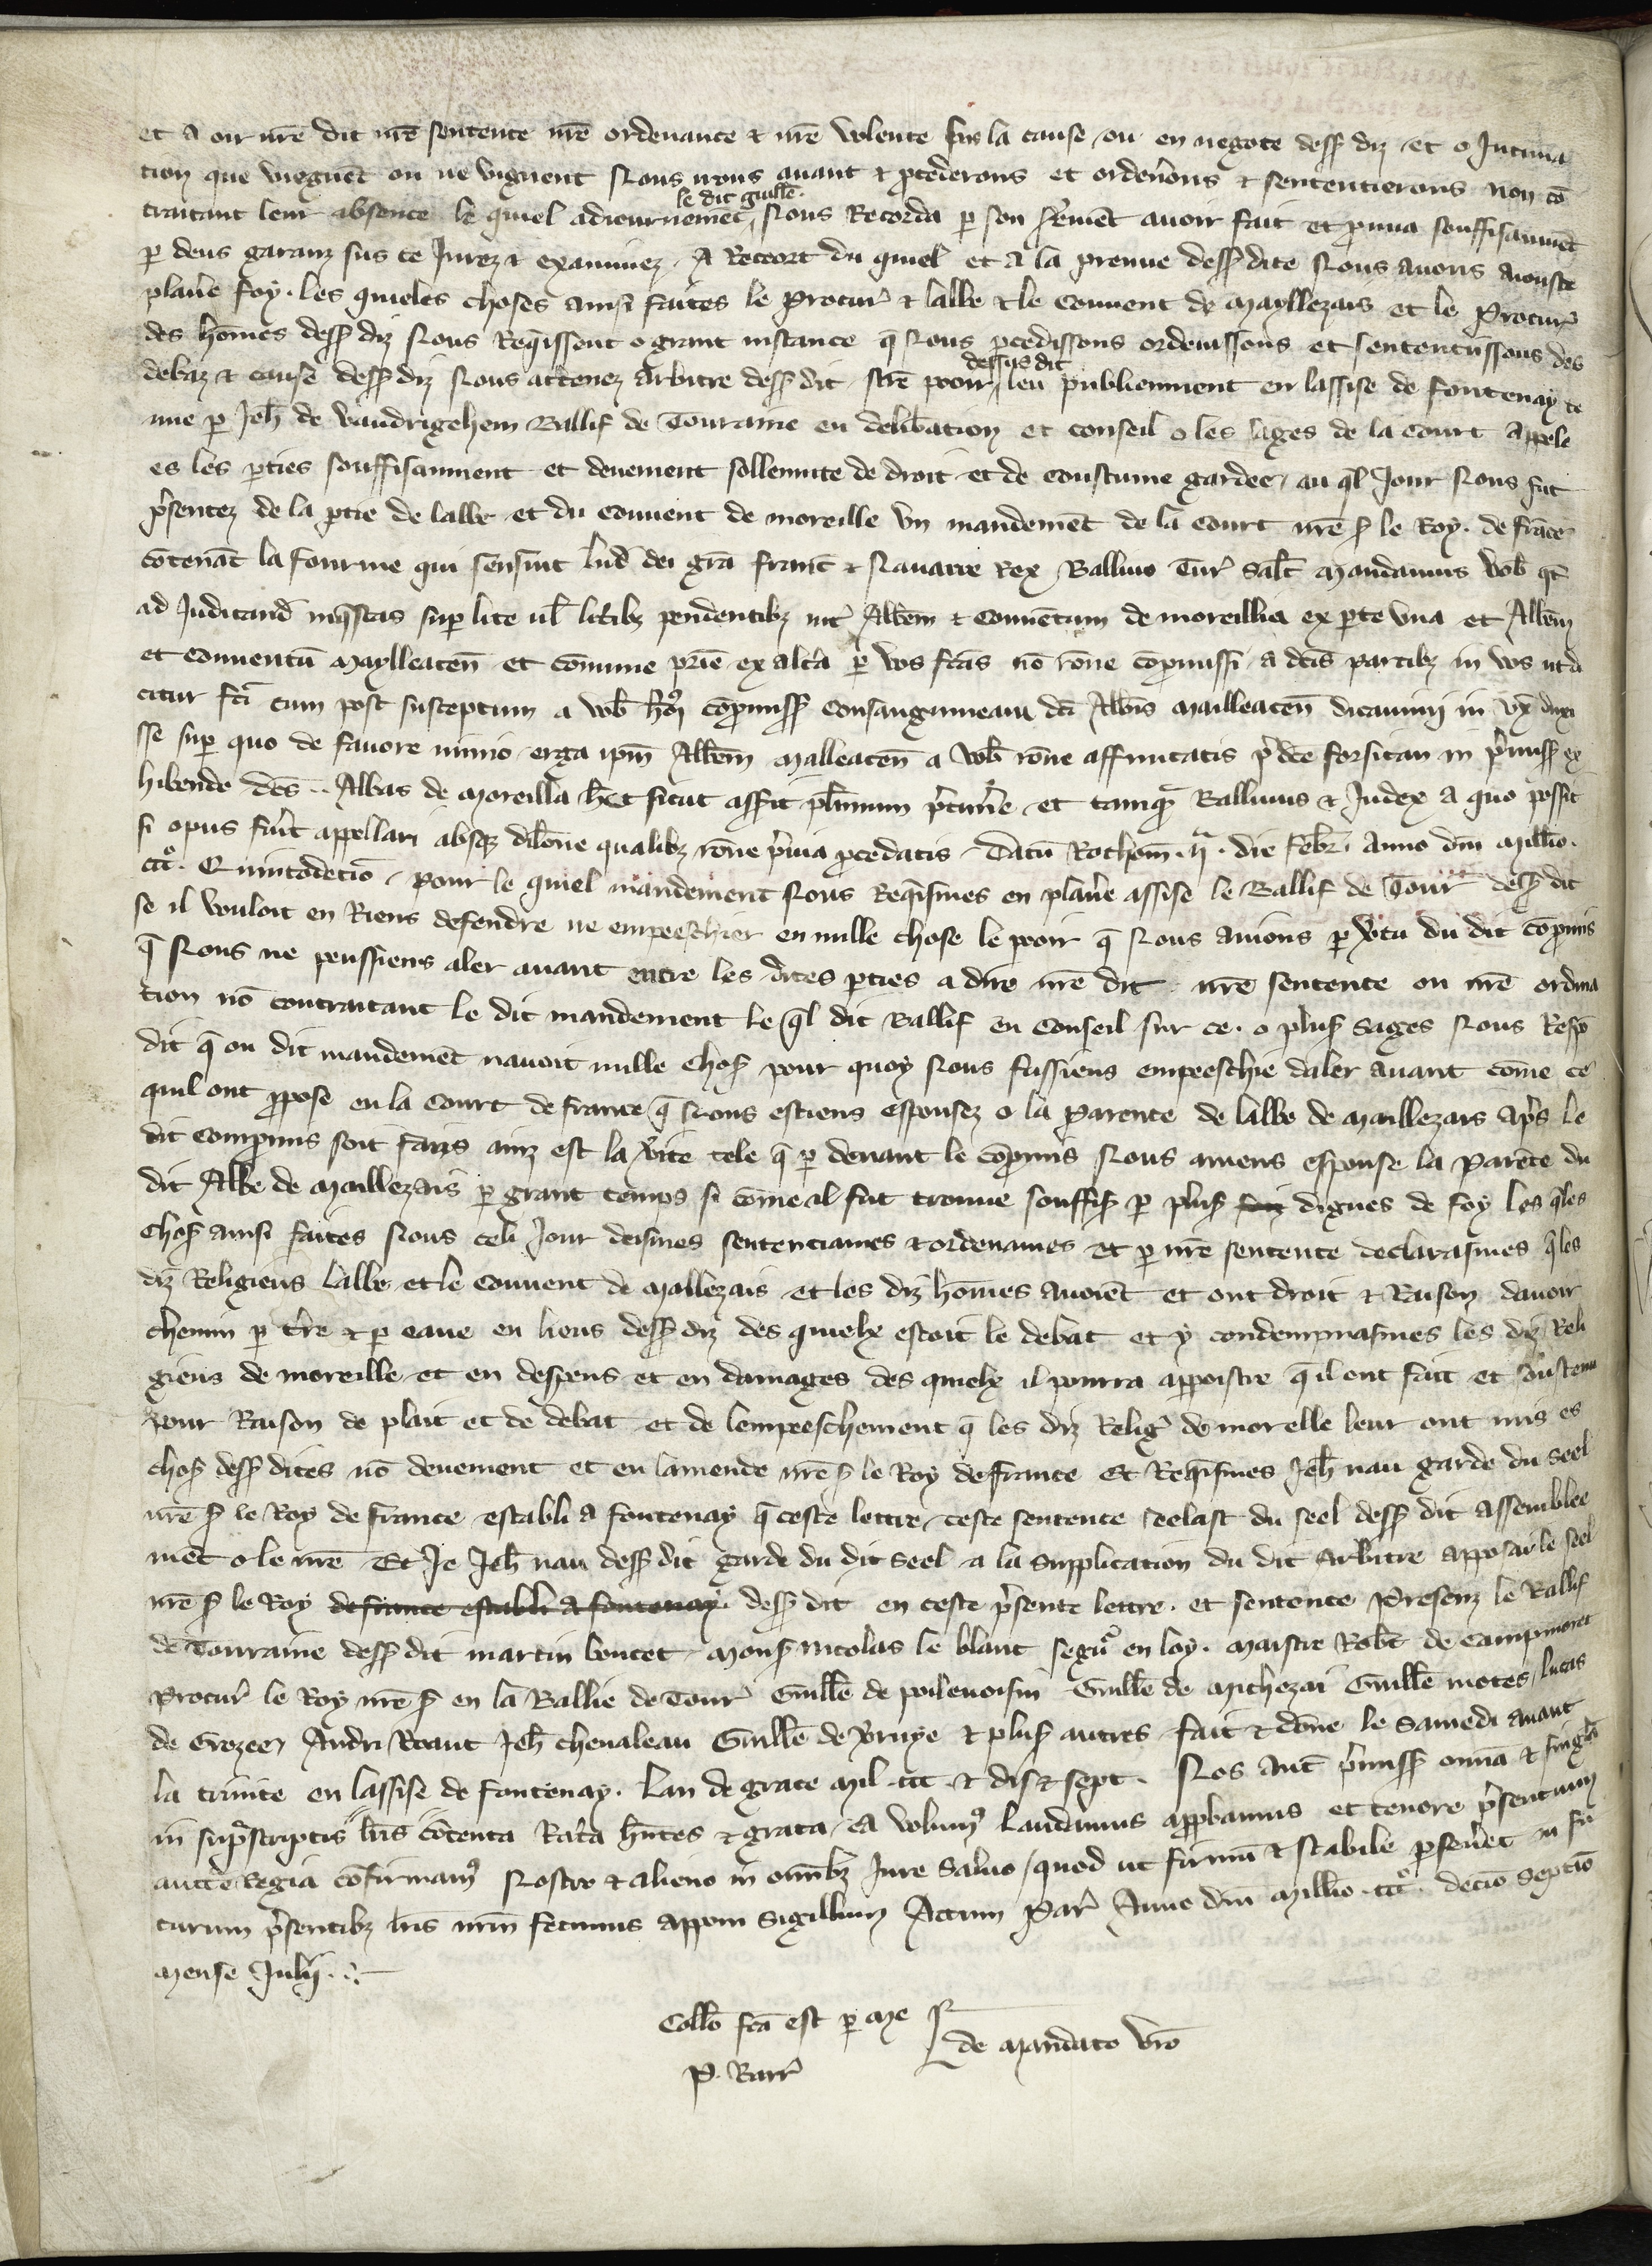 et a oir nr̄e dit nr̄e sentence nr̄e ordenance ⁊ nr̄e volente sus la cause ou en negoce dess9 diz et o Intima
tion que viegnēt ou ne viegnent Nous irons auant ⁊ ꝓcederons et ordenerons ⁊ sentencierons non cō
le dit guillē
traitant leur absence le quiel adiournemēt Nous Recorda ꝑ son seremēt auoir fait et ꝓuua souffisaumēt
ꝑ deus garanz sus ce Jurez ⁊ examinez A Recort du quiel et a la preuue dess9 dite Nous auons aiouste
plaine foy. les quieles choses ainsi faites le Procur̄ ⁊ labbe ⁊ le couuent de Mayllezais et le Procur̄
des hōmes dess9 diz Nous Req̄issent o grant instance q̄ Nous ꝓcedissons ordenissons et sentencissons des
dessus dit
debaz ⁊ cause dess9 diz Nous attenez arbitre dess9 dit pooir leu publiemment en lassise de Fontenay te
nue ꝑ Jeh̄ de Vaudrigehem Ballif de Touraine en delib̄ation et conseil o les sages de la court appele
es les ꝑties souffisaument et deuement sollennite de droit et de coustume gardee, au q̄l Jour Nous fut
p̄sentez de la ꝑtie de labbe et du couuent de moreille vn mandemēt de la court nr̄e s9 le Roy. de frāce
cōtenāt la fourme qui sensuit lud̄ dei gr̄a franc̄ ⁊ Nauarre Rex Balliuo Tur̄ Sal̄t Mandamus vob̄ qt̄
ad Judicand̄ inq̄stas sup̱ lite ul̄ litibꝫ pendentibꝫ int̄ Abb̄em ⁊ Conuētum de moreillia ex ꝑte vna et Abb̄em
et conuentū Maylleacen̄ et cōmune p̄rie ex alt̄a ꝑ vos fc̄as nō rōne cōpromissi a dc̄is partibꝫ in vos ut di
citur fc̄i cum post susceptum a vob̄ hmōi cōpromiss9 consanguineam dc̄i Abb̄is Mailleacen̄ dicamini in vx̄ duxi
sse sup̱ quo de fauore nimio erga ip̄m Abb̄em Malleacen̄ a vob̄ rōne affinitatis p̄dc̄e forsitan in p̄miss9 ex
hibende dc̄s .. Abbas de Moreilla h̄et sicut asserit pl̄imum p̄timere et tamq̄ Balliuus ⁊ Judex a quo possit
si opus fuit̄ appellari absqꝫ dil̄one qualibꝫ rōne p̄uia ꝓcedatis Datū Rothom̄ .ij. die febr̄. anno dn̄i Mill̄io.
ccc⁰. Quintodecīo. Pour le quiel mandement Nous Req̄ismes en plan̄e assise le Ballif de Tour̄ dess9 dit
se il vouloit en Riens defendre ne empeeschier en nulle chose le pooir q̄ Nous auions ꝑ v̄tu du dit cōpromis
q̄ Nous ne peussiens aler auant entre les dites ꝑties a dire nr̄e dit nr̄e sentence ou nr̄e ordina
tion nō contraitant le dit mandement le q̄l dit Ballif eu conseil sur ce. o plus9 Sages Nous Respō
dit q̄ ou dit mandemēt nauoit nulle chos9 pour quoy Nous fussiens empeeschie daler auant cōme ce
quil ont ꝓpose en la court de france q̄ Nous estiens espousez o la Parente de labbe de Maillezais ap̄s le
dit compromis soit faus ainz est la v̄ite tele q̄ ꝑ deuant le cōpromis Nous auiens espouse la Parēte du
dit Abbe de Maillezais ꝑ grant temps si cōme il fut trouue souffis9 ꝑ plus9 dignes de foy les q̄les
chos9 ainsi faites Nous celi Jour deismes sentenciames ⁊ ordenames et ꝑ nr̄e sentence declarasmes q̄ les
diz Religieus labbe et le couuent de Mallezais et les diz hōmes auoiēt et ont droit ⁊ Raison dauoir
chemin ꝑ t̄re ⁊ ꝑ eaue en lieus dess9 diz des quielx estoit le debat et y condempnasmes les diz Reli
gieus de moreille et en despens et en damages des quielx il pourra apparoistre q̄ il ont fait et soustenu
pour Raison de plait et de debat et de lempeeschement q̄ les diz Reliḡ de morelle leur ont mis es
chos9 dess9 dites nō deuement et en lamende nr̄e s9 le Roy de france Et Req̄ismes Jeh̄ nau garde du seel
nr̄e s9 le Roy de france establi a fontenay q̄ ceste lettre, ceste sentence seelast du seel dess9 dit assemblee
mēt o le nr̄e Et Je Jeh̄ nau dess9 dit garde du dit seel a la Supplication du dit arbitre apposai le seel
nr̄e s9 le Roy de france establi a fontenay dess9 dit en ceste p̄sente lettre. et sentence Presenz le Ballif
de Touraine dess9 dit martin boucet Mons9 nicolas le blanc segn̄⁰ en loy. Maistre Rob̄t de Campmoret
Procur̄ le Roy nr̄e s9 en la Ballie de Tour̄ Guill̄e de poilevoisin Guill̄e de Michezai Guill̄e motes, lucas
de Grezee Andri Roaut Jeh̄ cheualeau Guill̄e de v̄ruye ⁊ plus9 autres fait ⁊ dōne le Samedi auant
la trinite en lassise de fontenay. Lan de grace Mil .ccc. ⁊ dis ⁊ sept. Nos aut̄ p̄miss9 omīa ⁊ singl̄a
in sup̄scriptis lr̄is cōtenta Rata h̄ntes ⁊ grata ea volum9 laudamus apꝓbamus et tenore p̄sentium
auctᵗᵉ Regia cōfirmam9 Nostro ⁊ alieno in omībꝫ Jure Saluo, quod ut firmū ⁊ stabile ꝑseueret in fu
turum p̄sentibꝫ lr̄is nr̄m fecimus apponi Sigillum Actum Par̄ Anno dn̄i Mill̄io .ccc⁰. decīo septīo
Mense Julij.
Coll̄o fc̄a est ꝑ me
de Mandato vr̄o
P. Barr̄